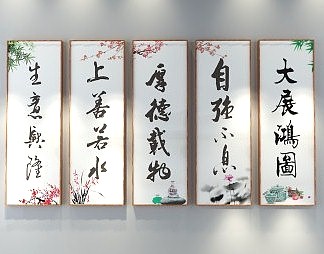 生意興隆
上善若水
厚德載物
自強不息
大展鴻圖